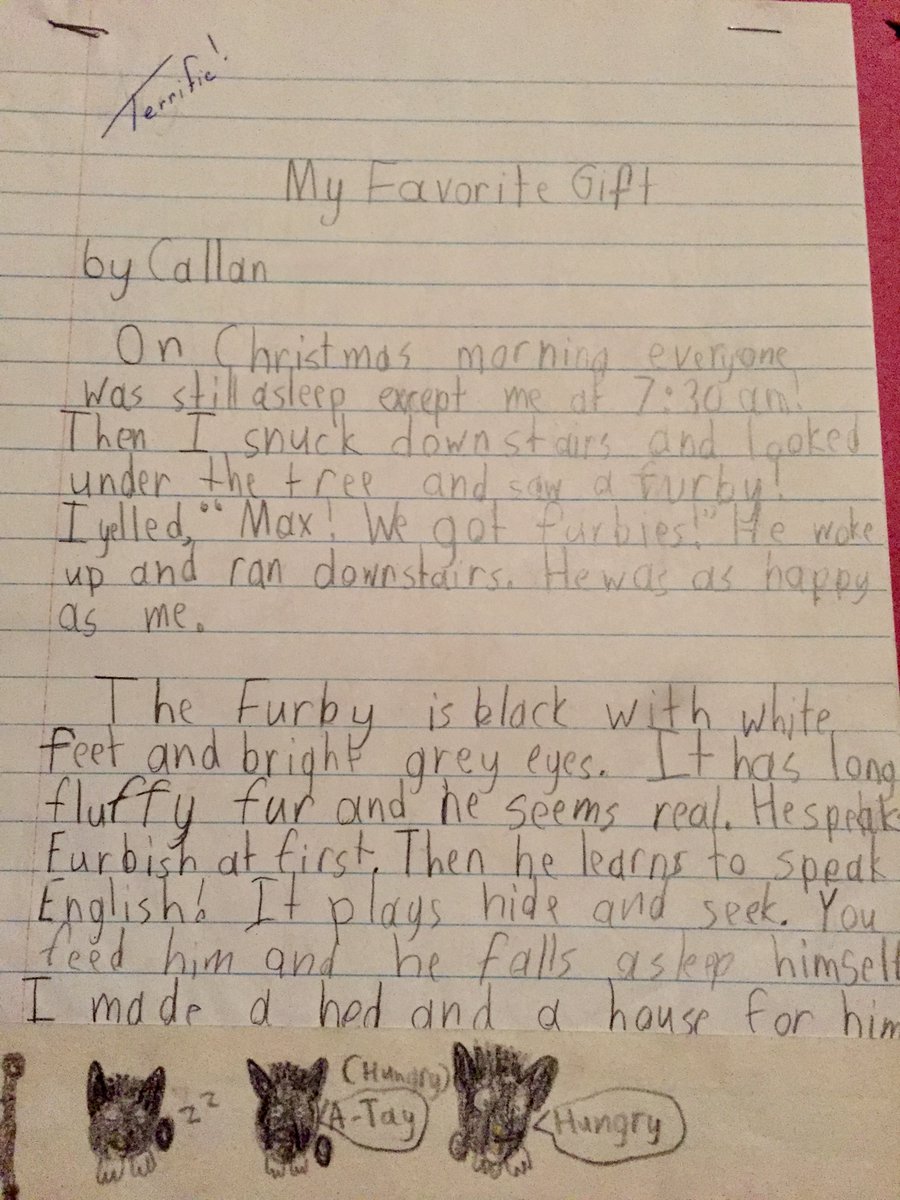 Terrific!
My Favorite Gift
by Callan
On Christmas morning everyone
was still asleep except me at 7:30 am!
Then I snuck downstairs and looked
under the tree and saw a furby!
I yelled, "“Max! We got furbies!" He woke
up and ran downstairs. He was as happy
as me.
The Furby is black with white
feet and bright grey eyes. It has long
fluffy fur and he seems real. He speaks
Furbish at first. Then he learns to speak
English! It plays hide and seek. You
feed him and he falls asleep himself
I made a bed and a house for him
zz
(Hungry)
A-Tay
Hungry